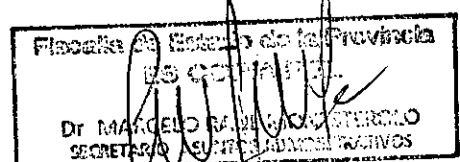 Fiscalía de Estado de la Provincia
ES COPIA FIEL
Dr. MARCELO RAUL
SECRETARIO ASUNTOS ADMINISTRATIVOS